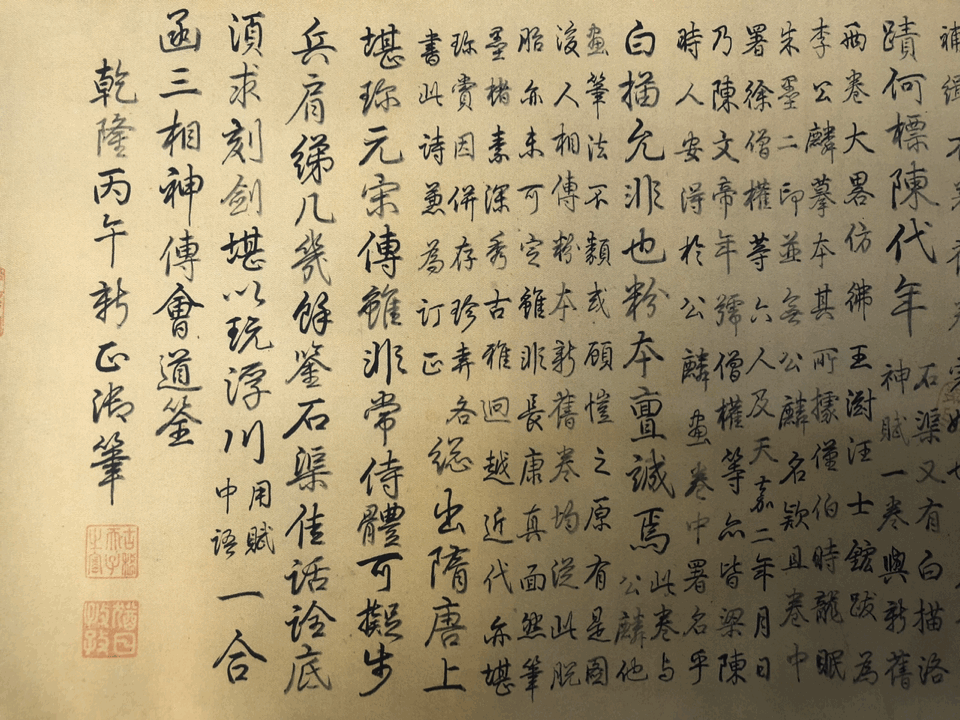 補綴不
蹟何標陳代年
石渠又有白描洛
神賦一卷與新舊
兩卷大畧仿彿王澍汪士鋐跋為
李公麟摹本其所據僅伯時龍眠
朱墨二印並無公麟名款且卷中
署徐僧權等六人及天嘉二年月日
乃陳文帝年號僧權等亦皆梁陳
時人安得於公麟畫卷中署名乎
白描允非也粉本亶誠焉
此卷与
公麟他
畫筆法不類或顧愷之原有是圖
後人相傳粉本新舊卷均從此脫
胎亦未可定雖非長康真面然筆
墨楮素深秀古雅迥越近代亦堪
珍賞因併存珍弆各
書此詩兼為訂正
總出隋唐上
堪珍元宋傳雖非常侍體可擬步
兵肩綈几幾餘鑒石渠佳話詮底
須求刻劍堪以玩浮川
用賦
中語
一合
函三相神傳會道筌
乾隆丙午新正御筆
古稀天子之寶
猶日孜孜